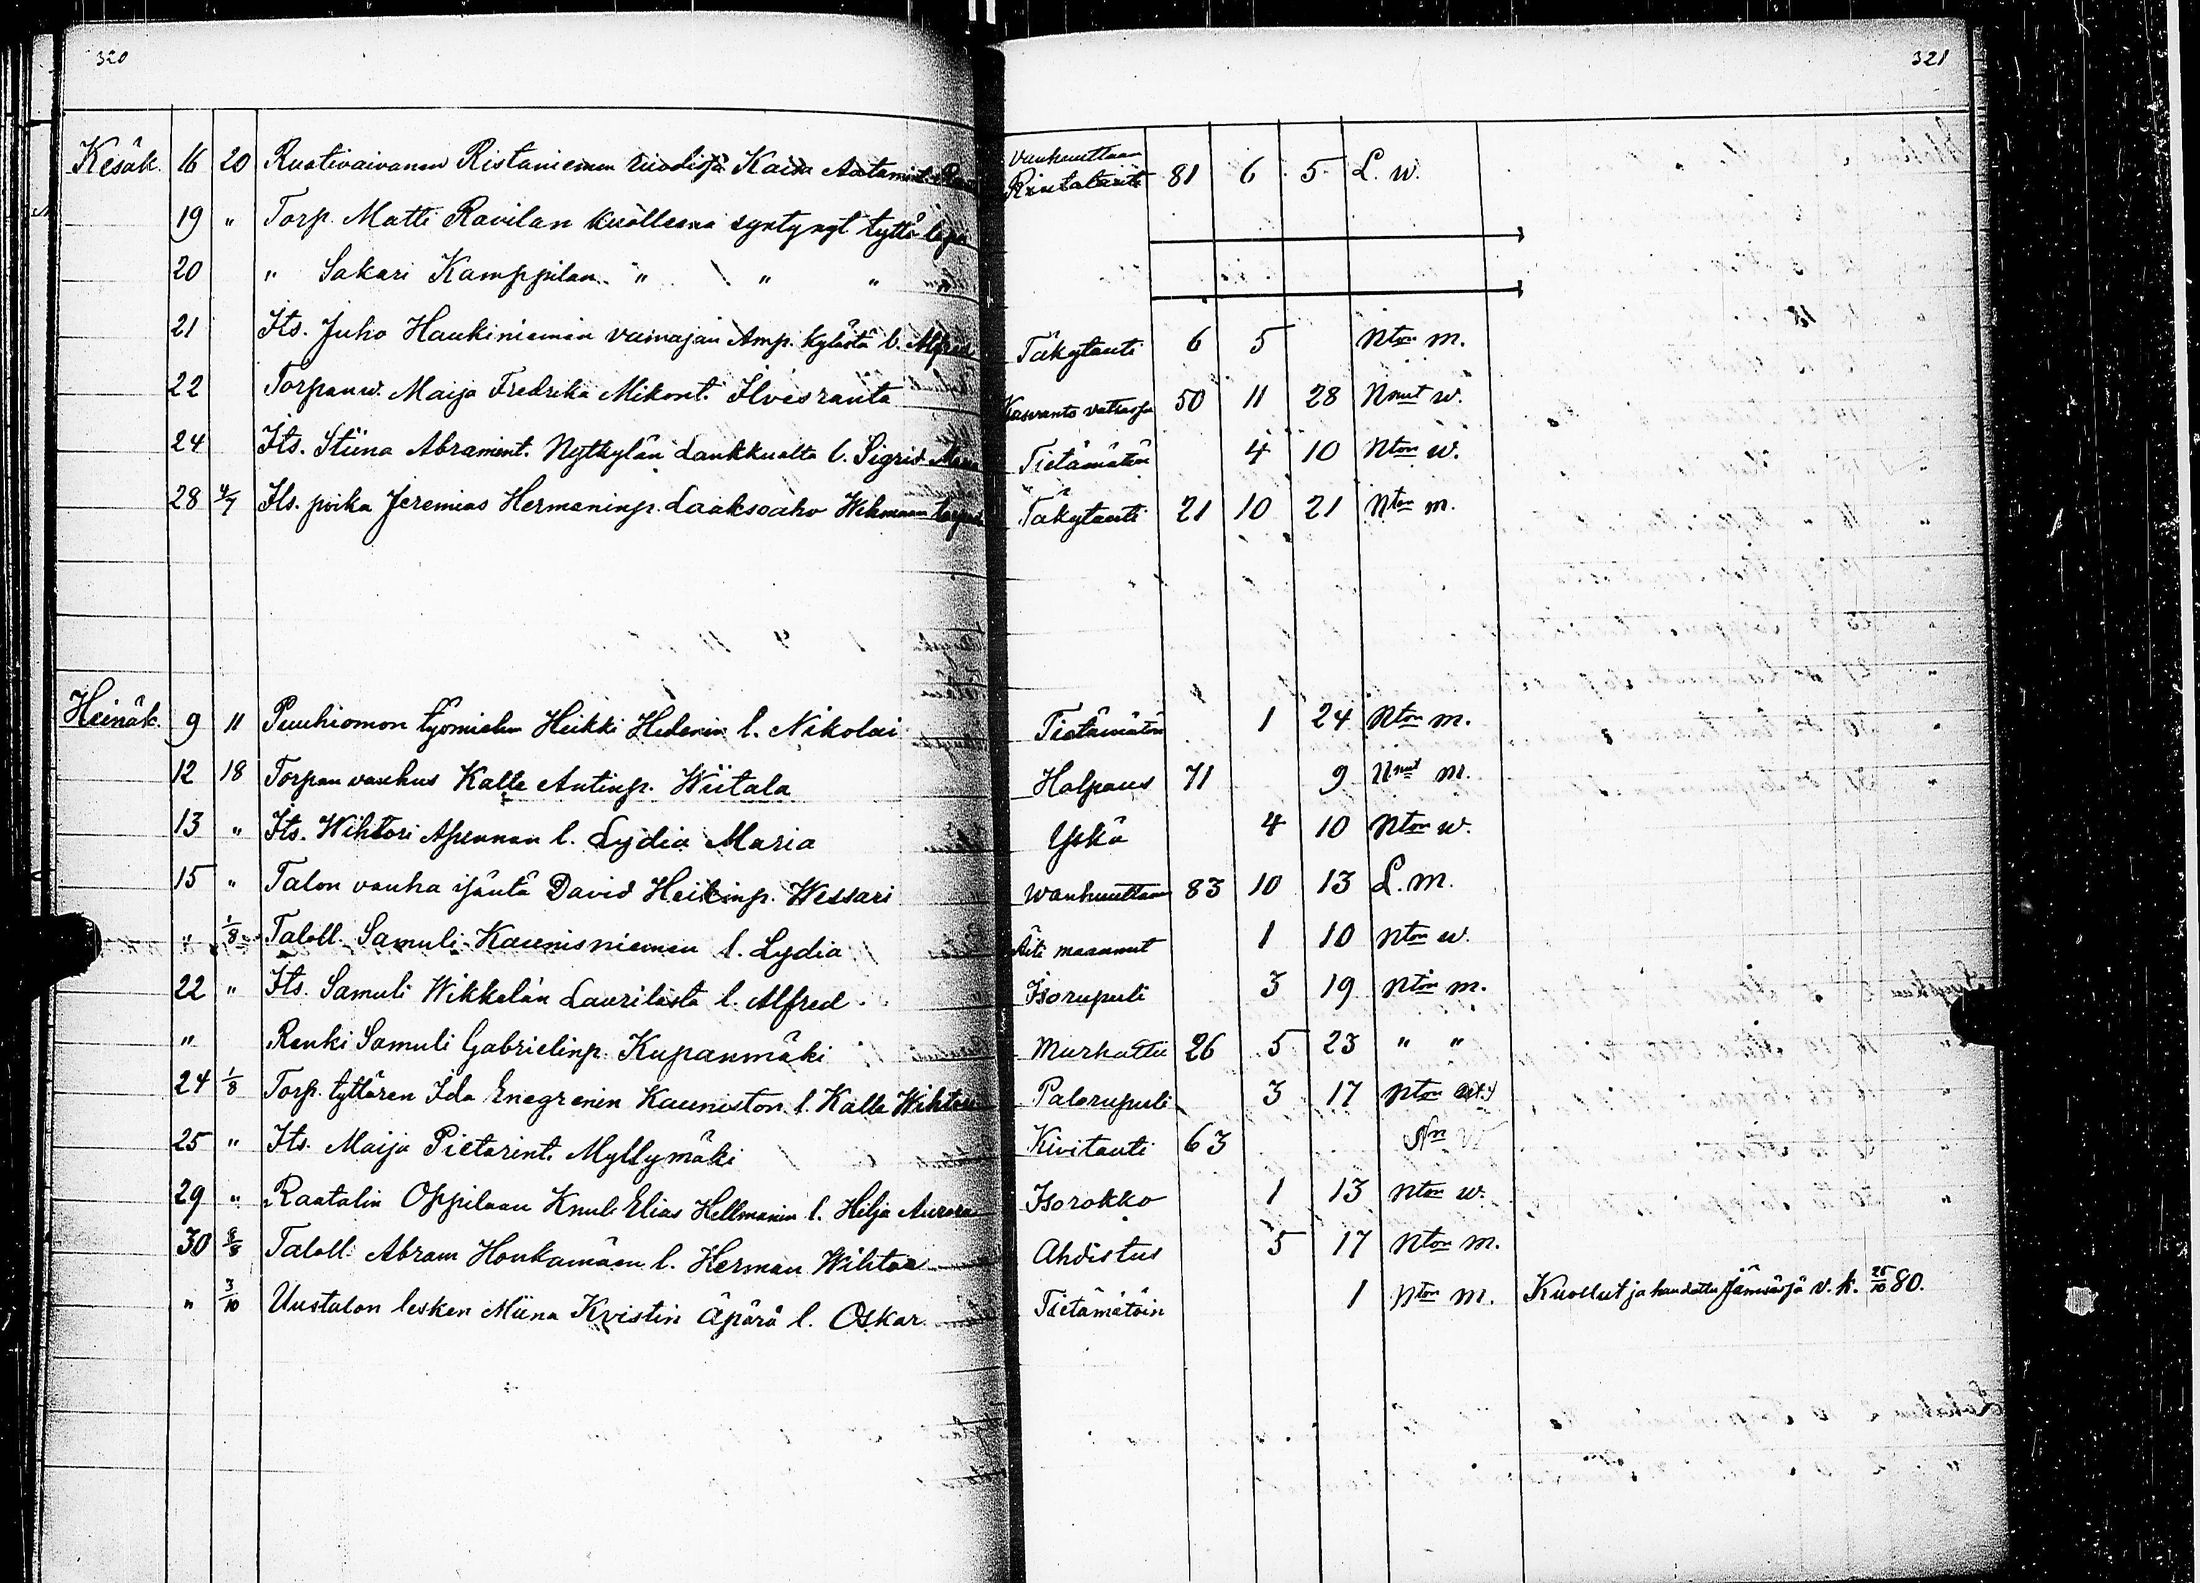 320
321
Kesäk. 16 20 Ruotivaivanen Ristaniemen ruodissa Kaisa Aatamint. Vanhuuttaan Rintatauti 81 6 5 L. w.
19 " Torp. Matti Ravilan kuolleena syntynyt tyttö lapsi
20 " Sakari Kamppilan " " "
21 Its. Juho Haukiniemen vainajan Amp. kylästä l. Alfred Täkytauti 6 5 Nton m.
22 Torpanw. Maija Fredrika Mikont. Ilvesranta Kasvanto vatsassa 50 11 28 Nnut w.
24 Its. Stiina Abramint. Nytkylän Lankkualta l. Sigrid Tietämätön 4 10 Nton w.
28 4/7 Its. poika Jeremias Hermaninp. Laaksoaho Täkytauti 21 10 21 Nton m.
Heinäk. 9 11 Puuhiomon työmiehen Heikki Hedenin l. Nikolai Tietämätön 1 24 Nton m.
12 18 Torpan vanhus Kalle Antinp. Wiitala Halpaus 71 9 Nnut m.
13 " Its. Wihtori Apunnan l. Lydia Maria Yskä 4 10 Nton w.
15 " Talon vanha isäntä David Heikinp. Wessari Wanhuuttaan 83 10 13 L. m.
" 1/8 Taloll. Samuli Kaunisniemen l. Lydia Äiti maannut 1 10 Nton w.
22 " Its. Samuli Wikkalän Laurilasta l. Alfred Isorupuli 3 19 Nton m.
" Renki Samuli Gabrielinp. Kupanmäki Murhattu 26 5 23 " "
24 1/8 Torp. tyttären Ida Enegrenin Kauniston l. Kalle Wihtori Palorupuli 3 17 Nton
25 " Its. Maija Pietarint. Myllymäki Kivitauti 63
29 " Raatalin Oppilaan Knut Elias Hellmanin l. Hilja Aurora Isorokko 1 13 Nton w.
30 8/8 Taloll. Abram Honkamäen l. Herman Wihtor Ahdistus 5 17 Nton m.
" 3/10 Uustalon lesken Miina Kvistin Äpärä l. Oskar Tietämätöin 1 Nton m. Kuollut ja haudattu Jämsässä v. k. 25/10 80.